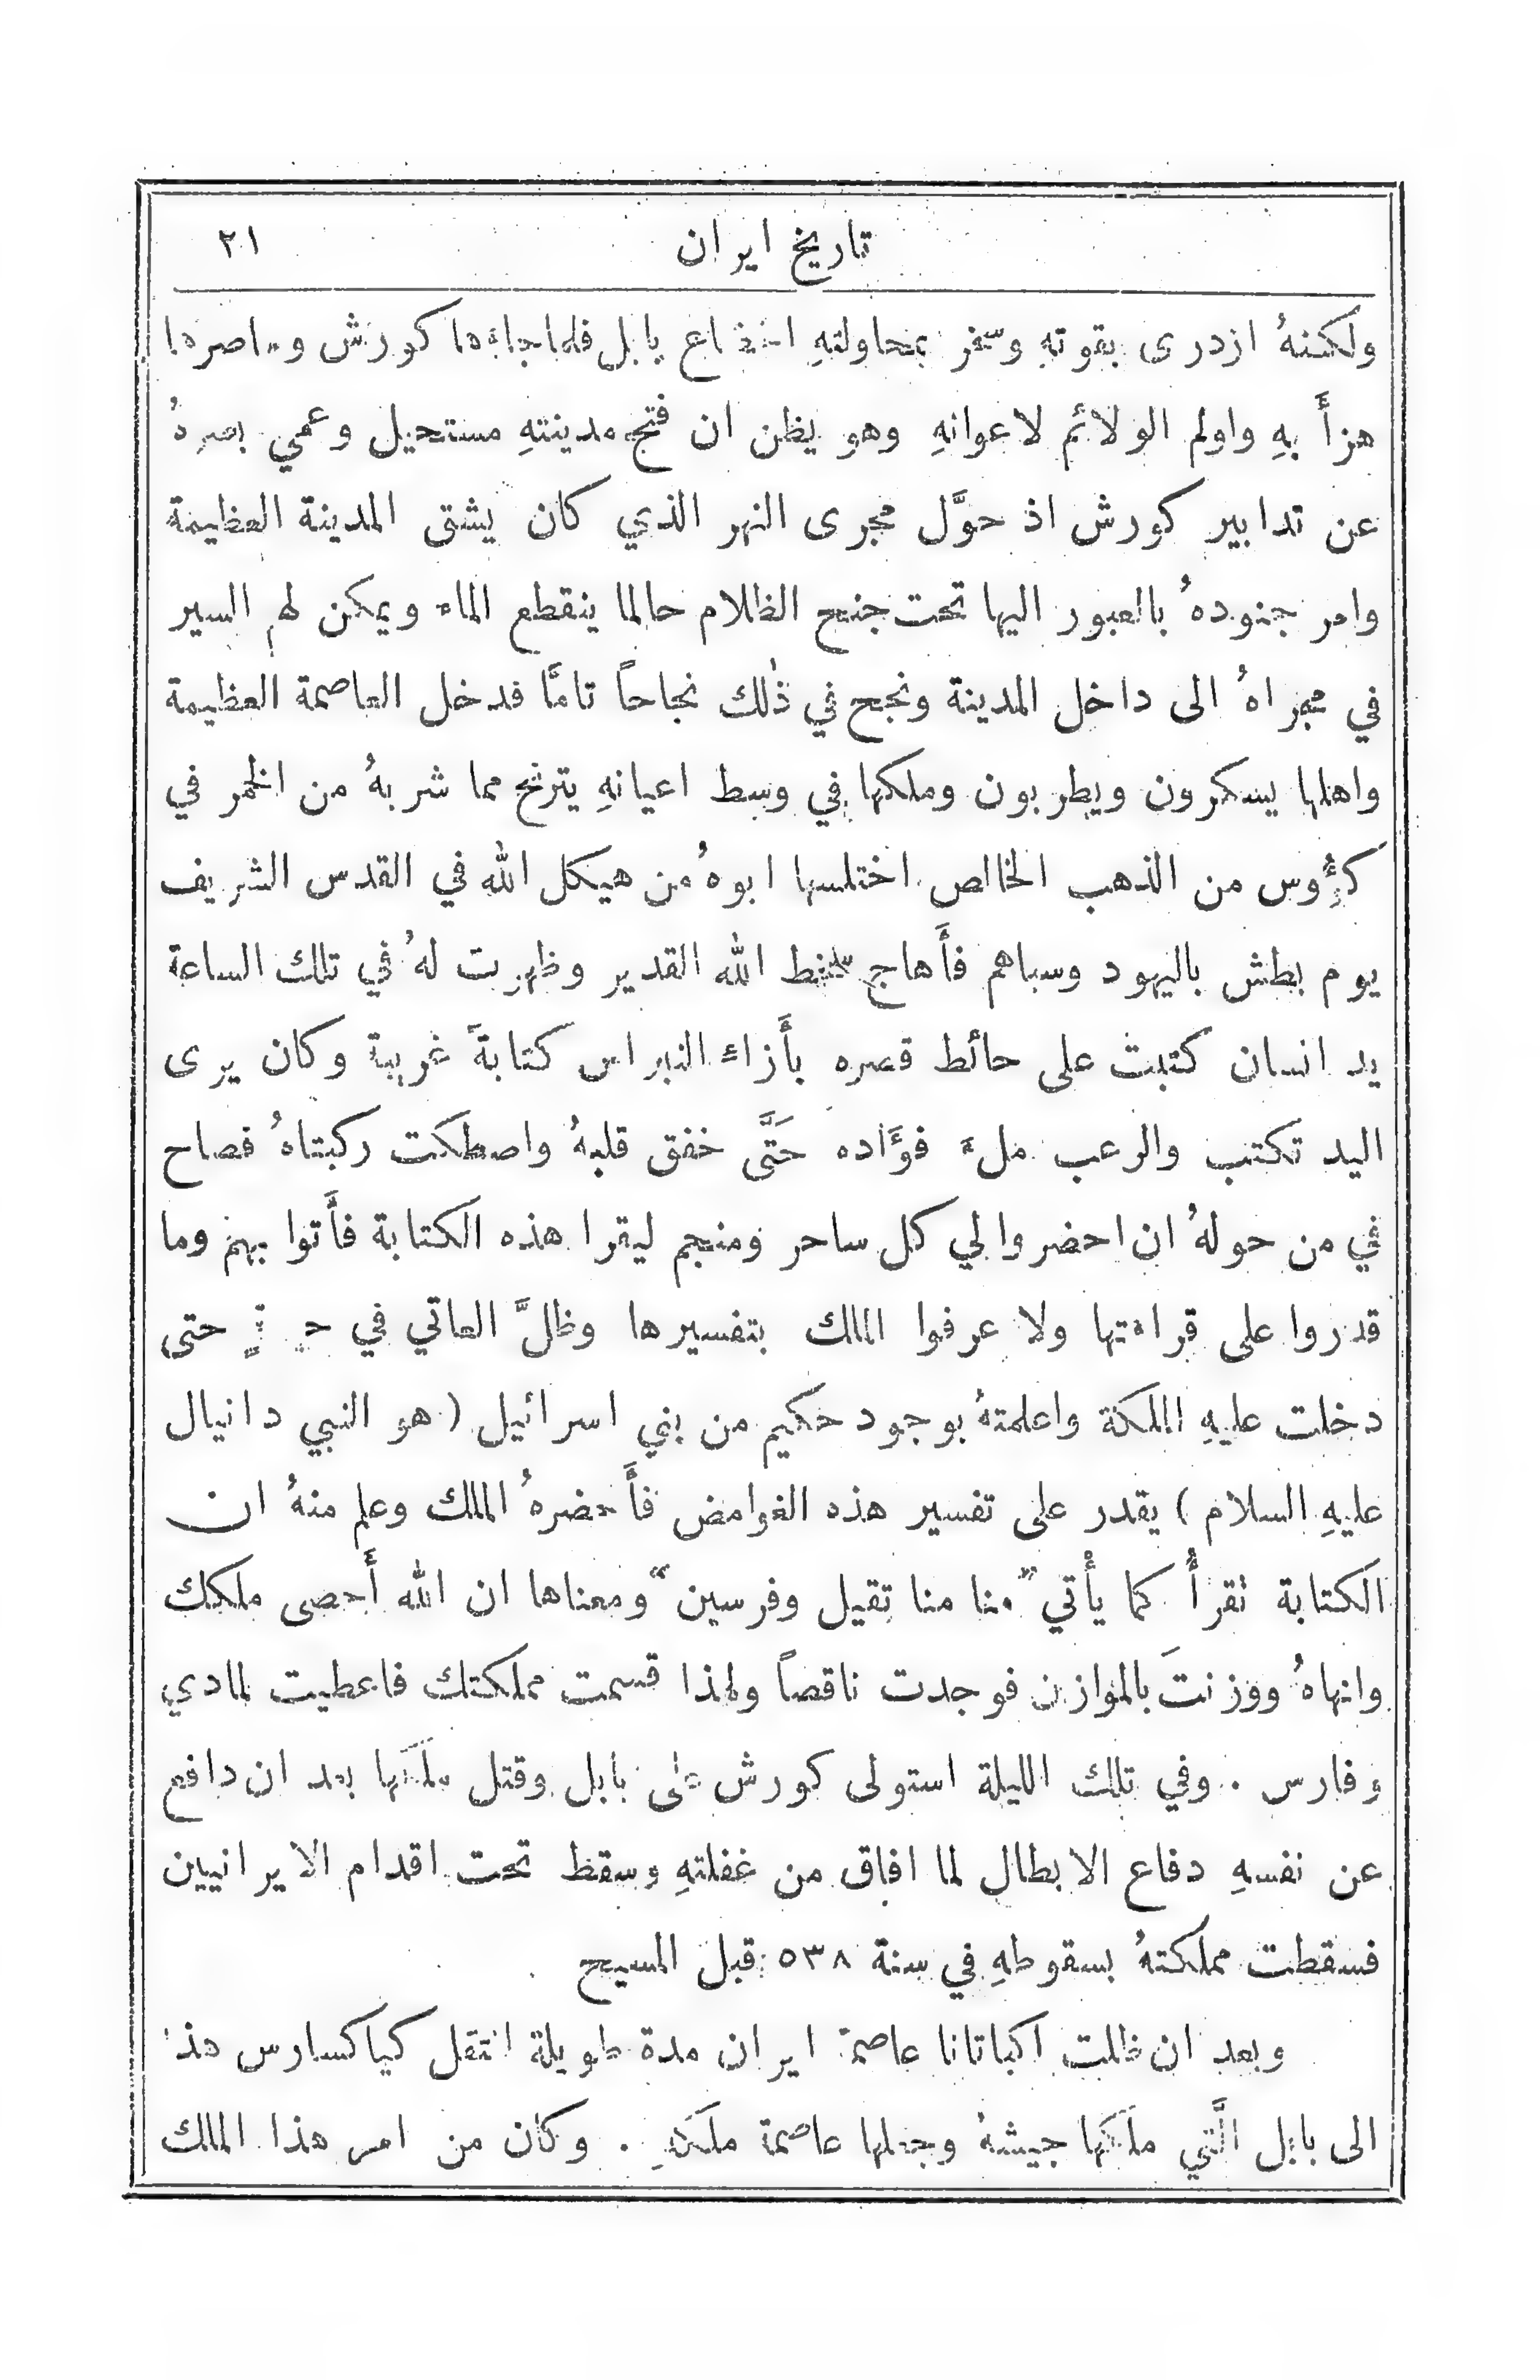 تاريخ ايران ٢١
ولكنهُ ازدرى بقوته وسخر بمحاولتهِ اخضاع بابل فلما جاءها كورش وحاصرها
هزأَ بهِ واولم الولائم لاعوانهِ وهو يظن ان فتح مدينتهِ مستحيل وعمي بصرهُ
عن تدابير كورش اذ حوَّل مجرى النهر الذي كان يشق المدينة العظيمة
وامر جنودهُ بالعبور اليها تحت جنح الظلام حالما ينقطع الماء ويمكن لهم السير
في مجراهُ الى داخل المدينة ونجح في ذٰلك نجاحاً تامَّا فدخل العاصمة العظيمة
واهلها يسكرون ويطربون وملكها في وسط اعيانهِ يترنح مما شربهُ من الخمر في
كؤُوس من الذهب الخالص اختلسها ابوهُ من هيكل الله في القدس الشريف
يوم بطش باليهود وسباهم فأَهاج سخط الله القدير وظهرت لهُ في تلك الساعة
يد انسان كتبت على حائط قصره بأَزاء النبراس كتابةً غريبة وكان يرى
اليد تكتب والرعب ملء فوَّاده حَتَّى خفق قلبهُ واصطكت ركبتاهُ فصاح
في من حولهُ ان احضروا لي كل ساحر ومنجم ليقرا هذه الكتابة فأَتوا بهم وما
قدروا على قراءتها ولا عرفوا الملك بتفسيرها وظلَّ العاتي في حتى
دخلت عليهِ الملكة واعلمتهُ بوجود حكيم من بني اسرائيل ( هو النبي دانيال
عليهِ السلام ) يقدر على تفسير هذه الغوامض فأَحضرهُ الملك وعلم منهُ ان
الكتابة تقرأُ كما يأْتي ” منا منا تقيل وفرسين “ ومعناها ان الله أَحصى ملكك
وانهاهُ ووزنتَ بالموازن فوجدت ناقصاً ولهذا قسمت مملكتك فاعطيت لمادي
وفارس . وفي تلك الليلة استولى كورش على بابل وقتل ملكها بعد ان دافع
عن نفسهِ دفاع الابطال لما افاق من غفلتهِ وسقط تحت اقدام الايرانيين
فسقطت مملكتهُ بسقوطهِ في سنة ٥٣٨ قبل المسيح
وبعد ان ظلت اكباتانا عاصمة ايران مدة طويلة انتقل كياكسارس هذا
الى بابل الَّتي ملكها جيشهُ وجعلها عاصمة ملكهِ . وكان من امر هذا الملك